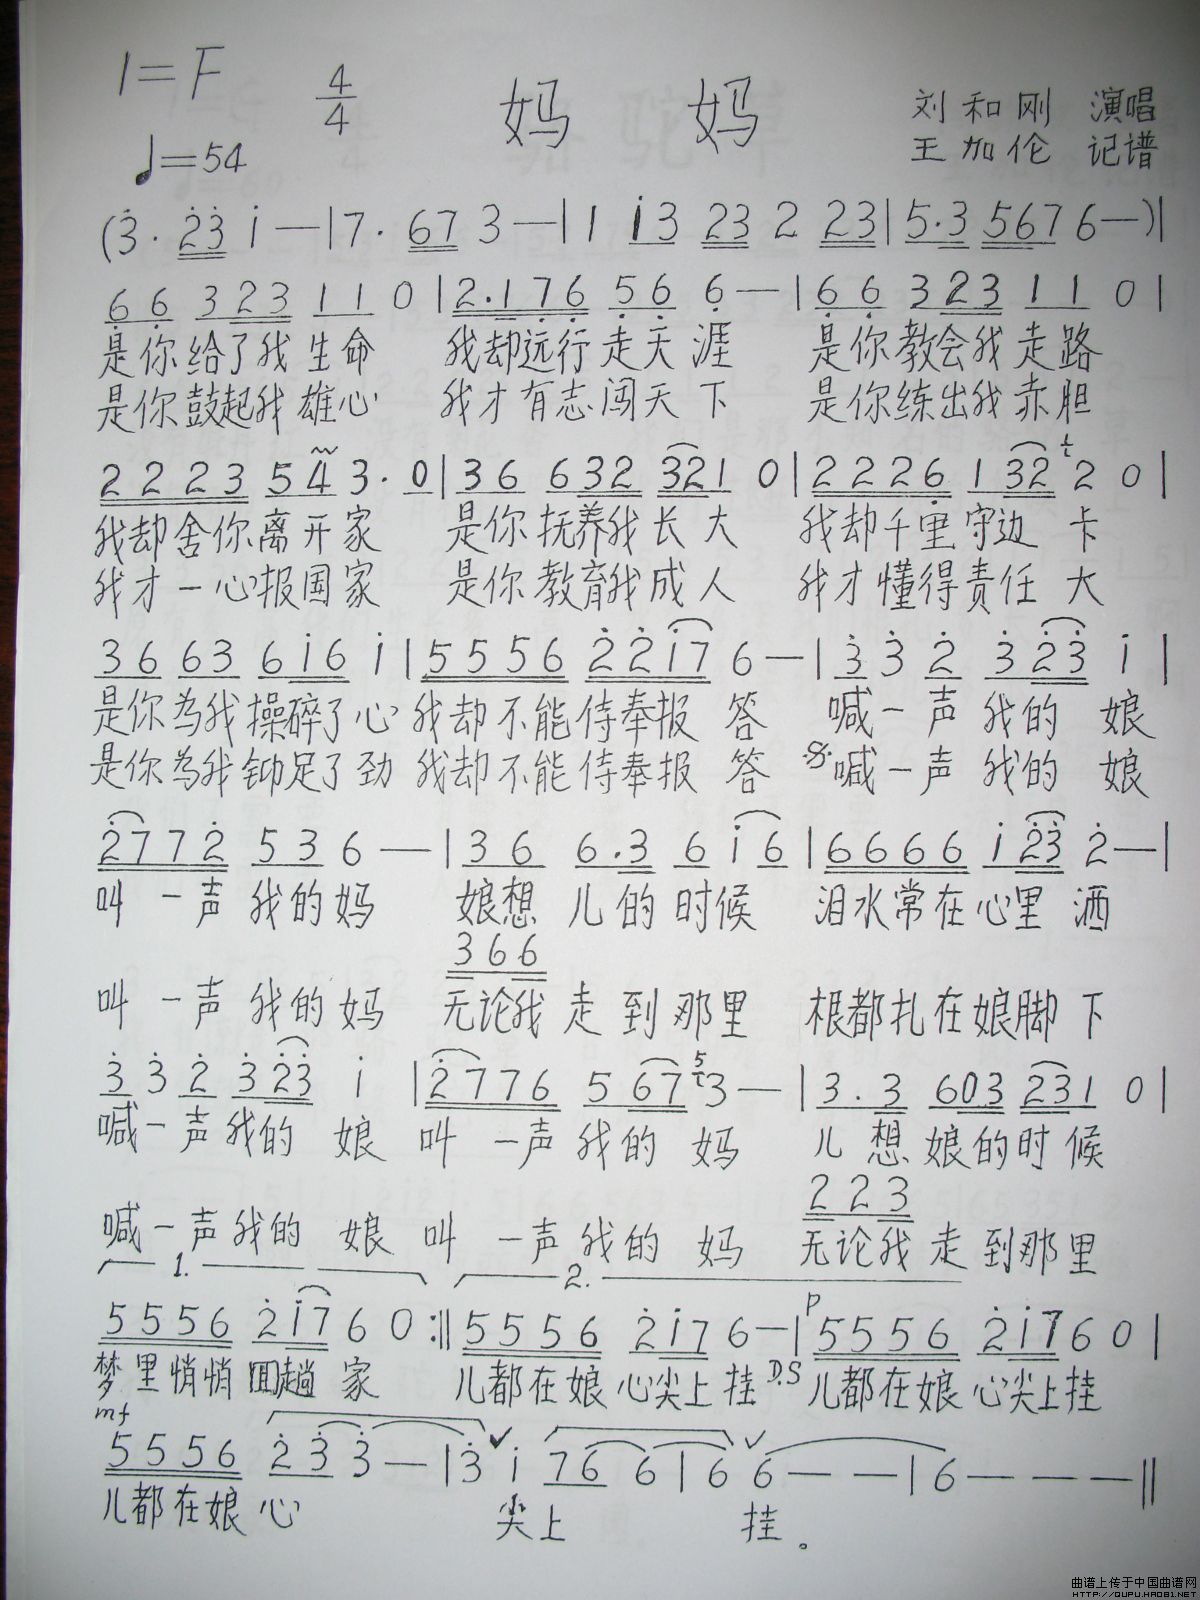 1=F 4/4 妈 妈 刘和刚 演唱
♩=54 王加伦 记谱
(3̇· 2̇3̇ 1̇ — | 7· 67 3 — | 1 1̇3 23 2 23 | 5·3 567 6 — ) |
6̣ 6̣ 3 23 1 1 0 | 2·1 7̣6̣ 5̣6̣ 6̣ — | 6̣ 6̣ 3 23 1 1 0 |
是你给了我生命 我却远行走天涯 是你教会我走路
是你鼓起我雄心 我才有志闯天下 是你练出我赤胆
2 2 2 3 5 4 3· 0 | 3 6 6 32 321 0 | 2 2 2 6̣ 1 32 2 0 |
我却舍你离开家 是你抚养我长大 我却千里守边卡
我才一心报国家 是你教育我成人 我才懂得责任大
3 6 6 3 6 1̇6 1̇ | 5 5 5 6 2̇ 2̇ 1̇7 6 — | 3̇ 3̇ 2̇ 3̇ 2̇3̇ 1̇ |
是你为我操碎了心 我却不能侍奉报答 喊一声我的娘
是你为我铆足了劲 我却不能侍奉报答 𝄋喊一声我的娘
2̇7 7 2̇ 5 3 6 — | 3 6 6·3 6 1̇6 | 6 6 6 6 1̇ 2̇3̇ 2̇ — |
叫一声我的妈 娘想儿的时候 泪水常在心里洒
3 6 6
叫一声我的妈 无论我走到那里 根都扎在娘脚下
3̇ 3̇ 2̇ 3̇ 2̇3̇ 1̇ | 2̇7 7 6 5 67 5 3 — | 3· 3 603 231 0 |
喊一声我的娘 叫一声我的妈 儿想娘的时候
2 2 3
喊一声我的娘 叫一声我的妈 无论我走到那里
1. 2.
5 5 5 6 2̇ 1̇7 6 0 :‖ 5 5 5 6 2̇ 1̇7 6 — | p 5 5 5 6 2̇ 1̇7 6 0 |
梦里悄悄回趟家 儿都在娘心尖上挂 D.S 儿都在娘心尖上挂
mf
5 5 5 6 2̇ 3̇ 3̇ — | 3̇ 1̇ 76 6 | 6 6 — — | 6 — — — ‖
儿都在娘心 尖上 挂。
曲谱上传于中国曲谱网
HTTP://QUPU.HAO81.NET